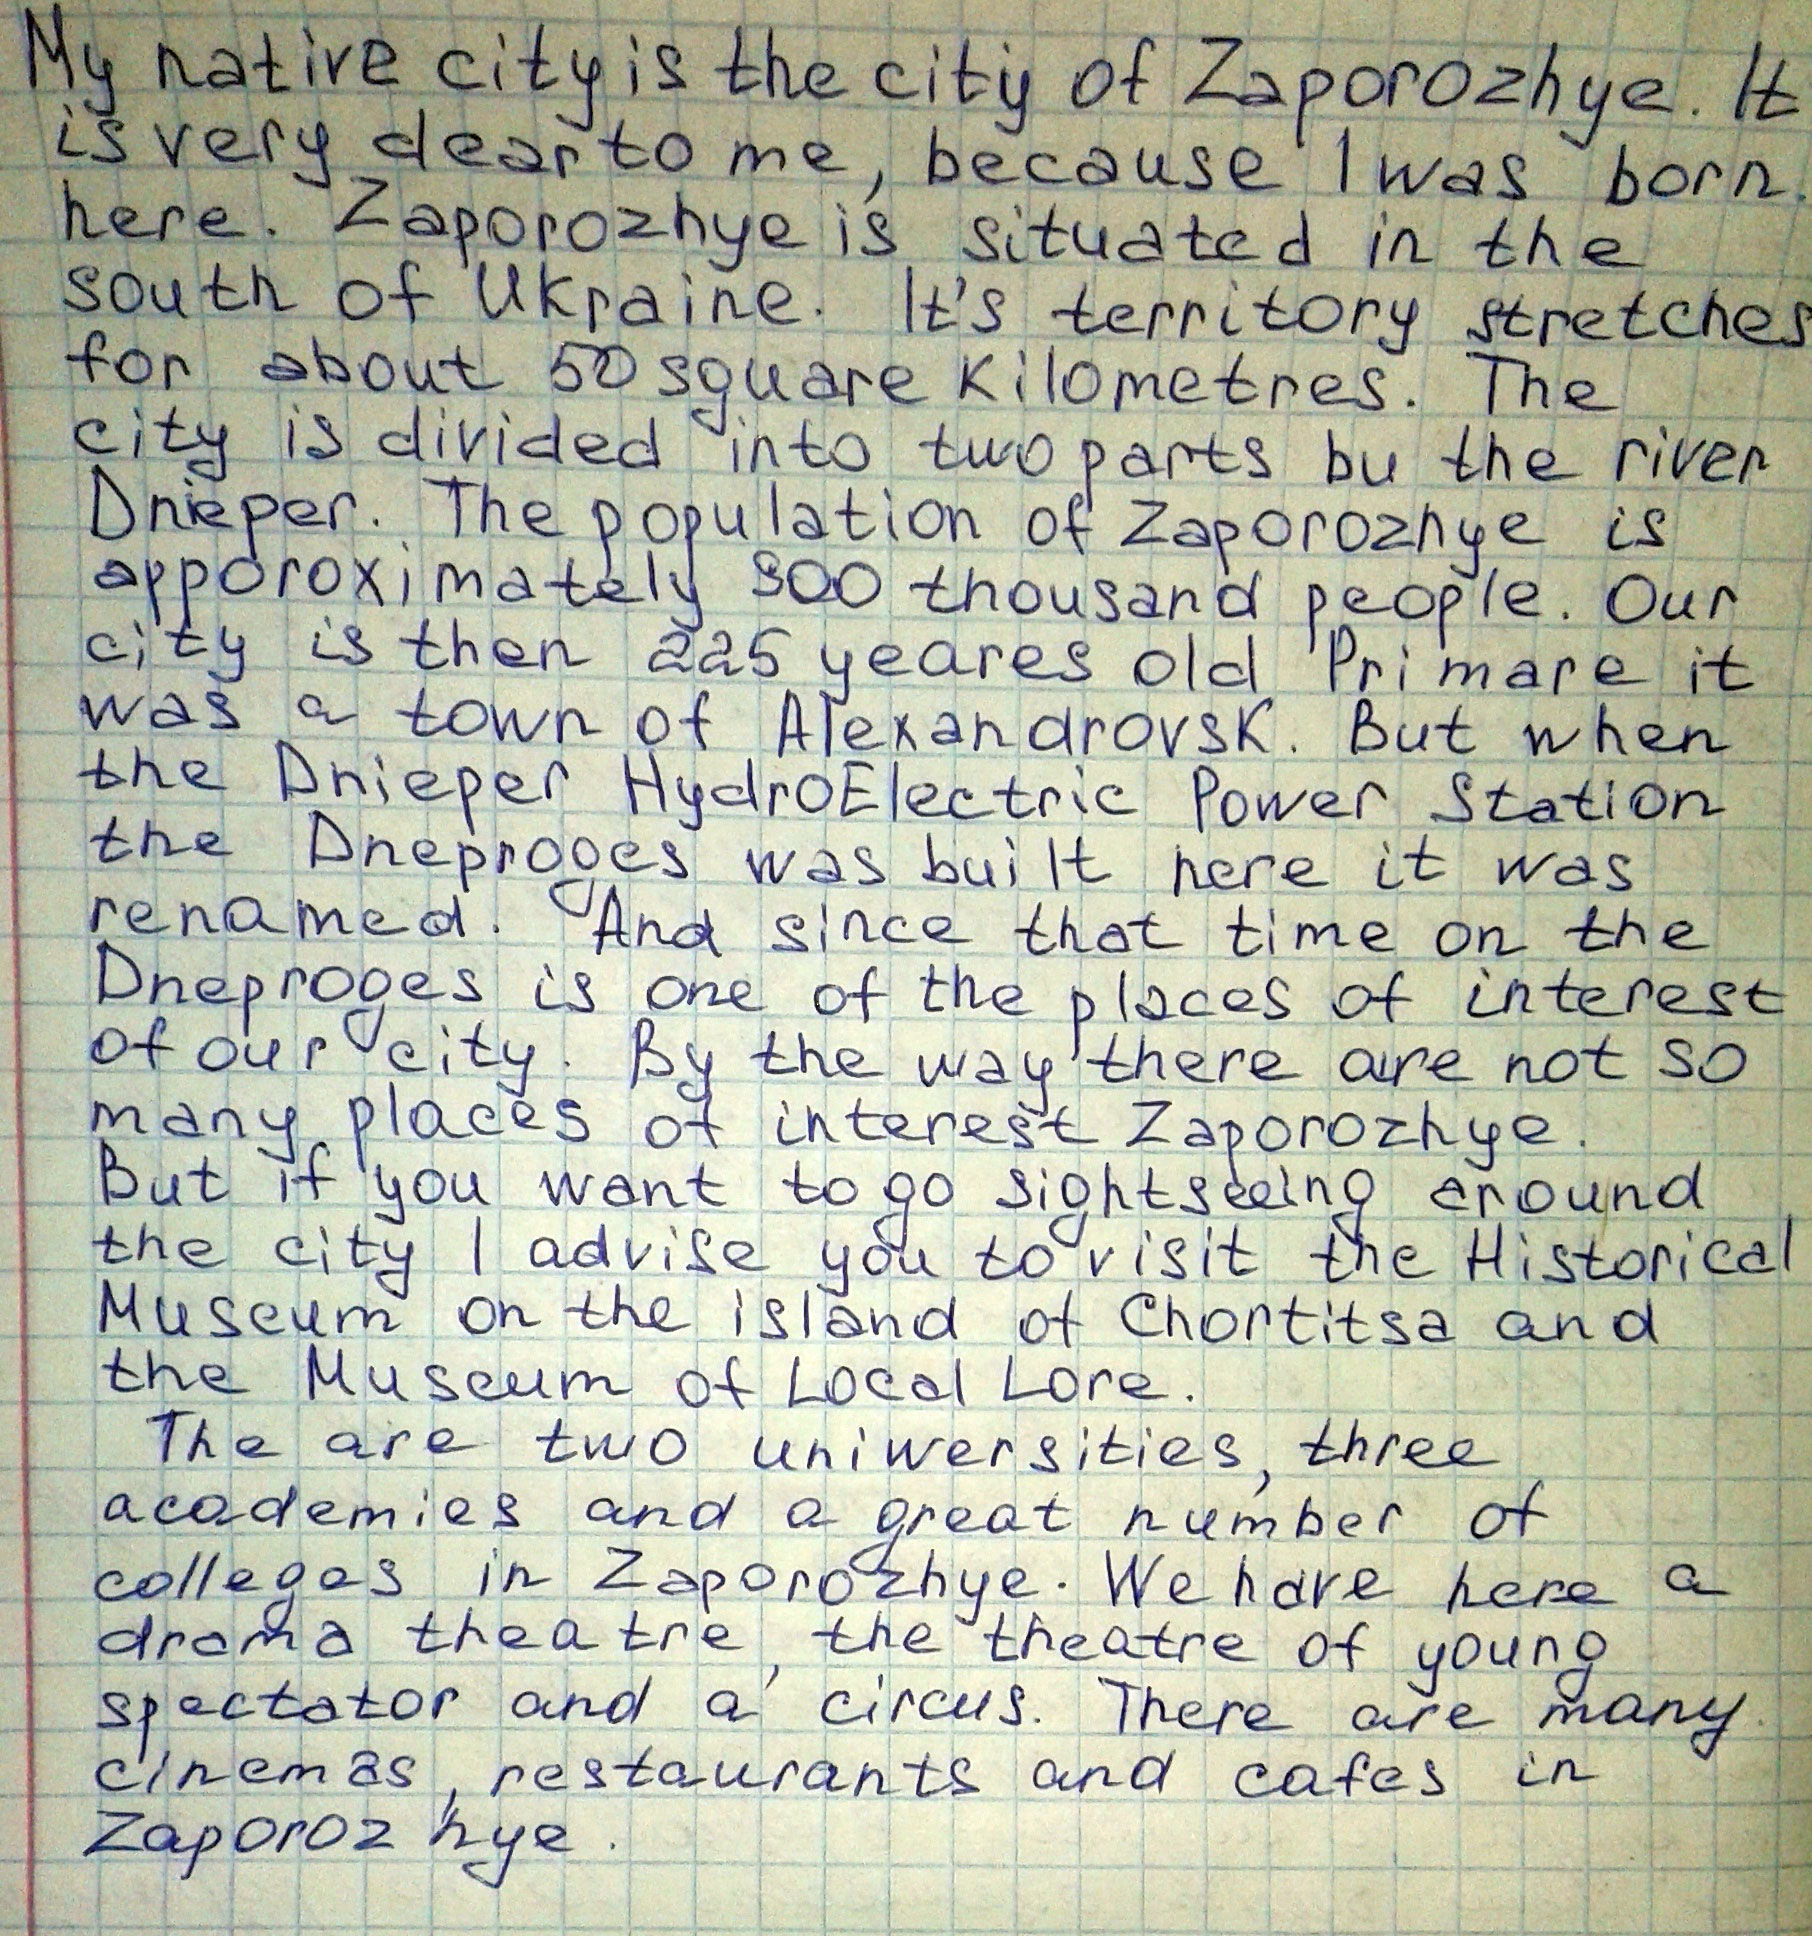 My native city is the city of Zaporozhye. It
is very dear to me, because I was born
here. Zaporozhye is situated in the
south of Ukraine. It's territory stretches
for about 50 square kilometres. The
city is divided into two parts bu the river
Dnieper. The population of Zaporozhye is
apporoximately 900 thousand people. Our
city is then 225 yeares old Primare it
was a town of Alexandrovsk. But when
the Dnieper HydroElectric Power Station
the Dneproges was built here it was
renamed. And since that time on the
Dneproges is one of the places of interest
of our city. By the way there are not so
many places of interest Zaporozhye.
But if you want to go sightseeing around
the city I advise you to visit the Historical
Museum on the island of Chortitsa and
the Museum of Local Lore.
The are two uniwersities, three
academies and a great number of
colleges in Zaporozhye. We have here a
drama theatre, the theatre of young
spectator and a circus. There are many
cinemas, restaurants and cafes in
Zaporozhye.